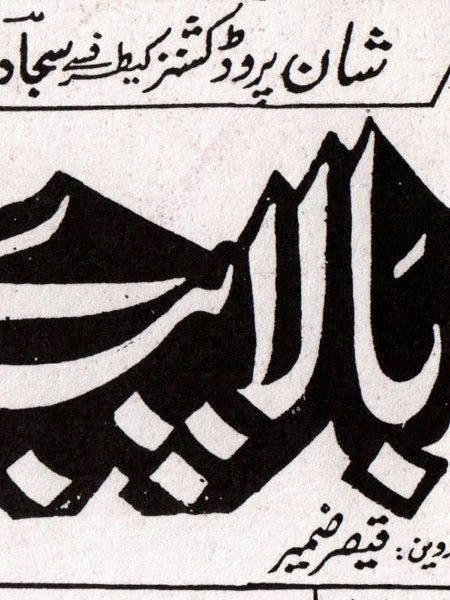 شان پروڈکشنز کیطرف سے سجاد
بالا پیرے
روین: قیصر ضمیر